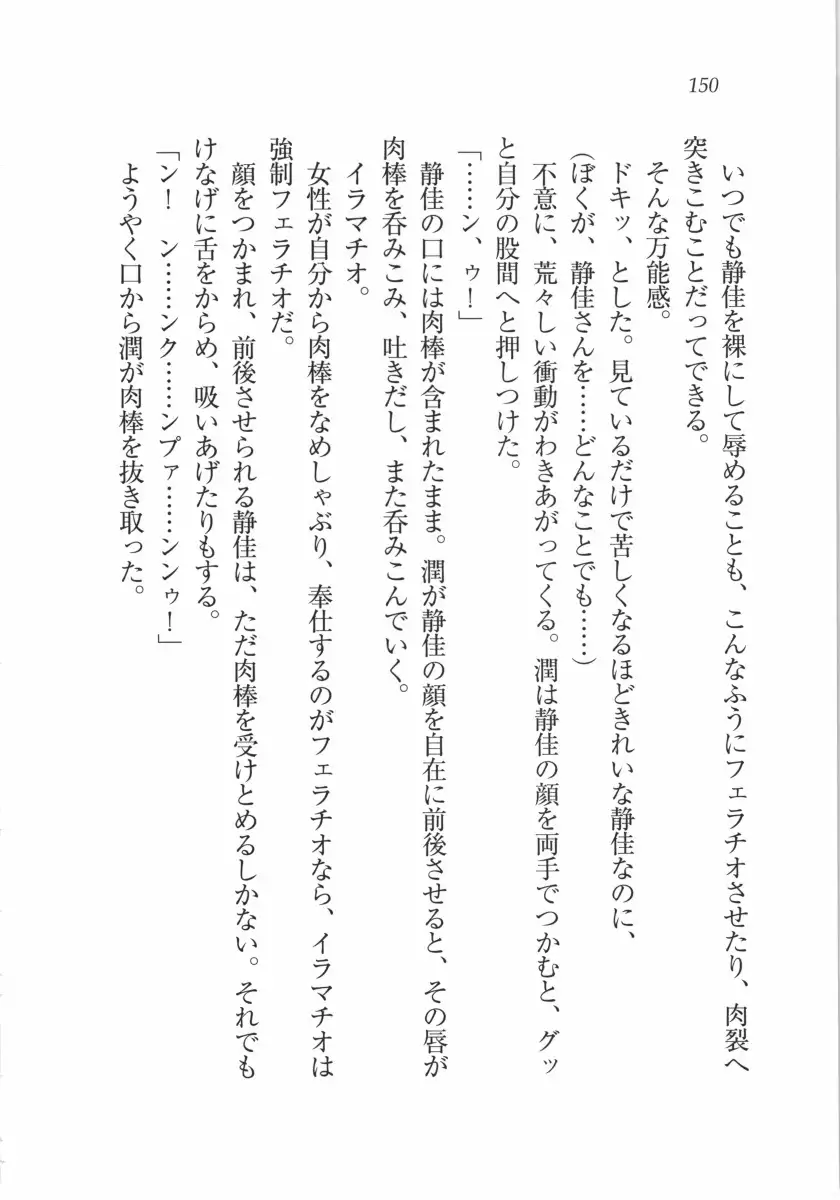 150
いつでも静佳を裸にして辱めることも、こんなふうにフェラチオさせたり、肉裂へ
突きこむことだってできる。
そんな万能感。
ドキッ、とした。見ているだけで苦しくなるほどきれいな静佳なのに、
(ぼくが、静佳さんを……どんなことでも……)
不意に、荒々しい衝動がわきあがってくる。潤は静佳の顔を両手でつかむと、グッ
と自分の股間へと押しつけた。
「……ン、ゥ！」
静佳の口には肉棒が含まれたまま。潤が静佳の顔を自在に前後させると、その唇が
肉棒を呑みこみ、吐きだし、また呑みこんでいく。
イラマチオ。
女性が自分から肉棒をなめしゃぶり、奉仕するのがフェラチオなら、イラマチオは
強制フェラチオだ。
顔をつかまれ、前後させられる静佳は、ただ肉棒を受けとめるしかない。それでも
けなげに舌をからめ、吸いあげたりもする。
「ン！　ン……ンク……ンプァ……ンンゥ！」
ようやく口から潤が肉棒を抜き取った。